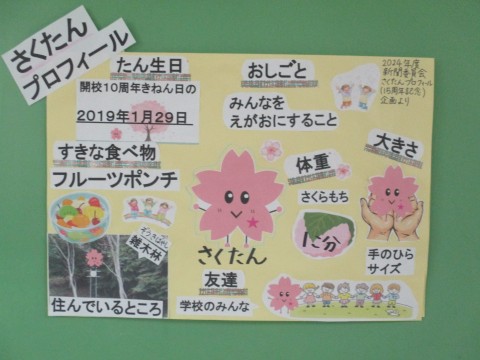 さくたん
プロフィール
たん生日
開校10周年きねん日の
2019年1月29日
おしごと
みんなを
えがおにすること
2024年度
新聞委員会
さくたんプロフィール
(15周年記念)
企画より
すきな食べ物
フルーツポンチ
体重
さくらもち
1こ分
大きさ
手のひら
サイズ
ぞうきばやし
雑木林
住んでいるところ
さくたん
友達
学校のみんな